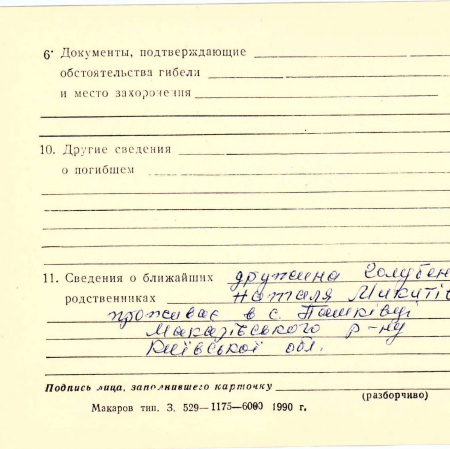 6. Документы, подтверждающие
обстоятельства гибели
и место захоронения
10. Другие сведения
о погибшем
11. Сведения о ближайших дружина Голубен
родственниках Наталя Микитів
проживає в с. Пашківці
Макарівського р-ну
Київської обл.
Подпись лица, заполнившего карточку
(разборчиво)
Макаров тип. З. 529—1175—6000 1990 г.